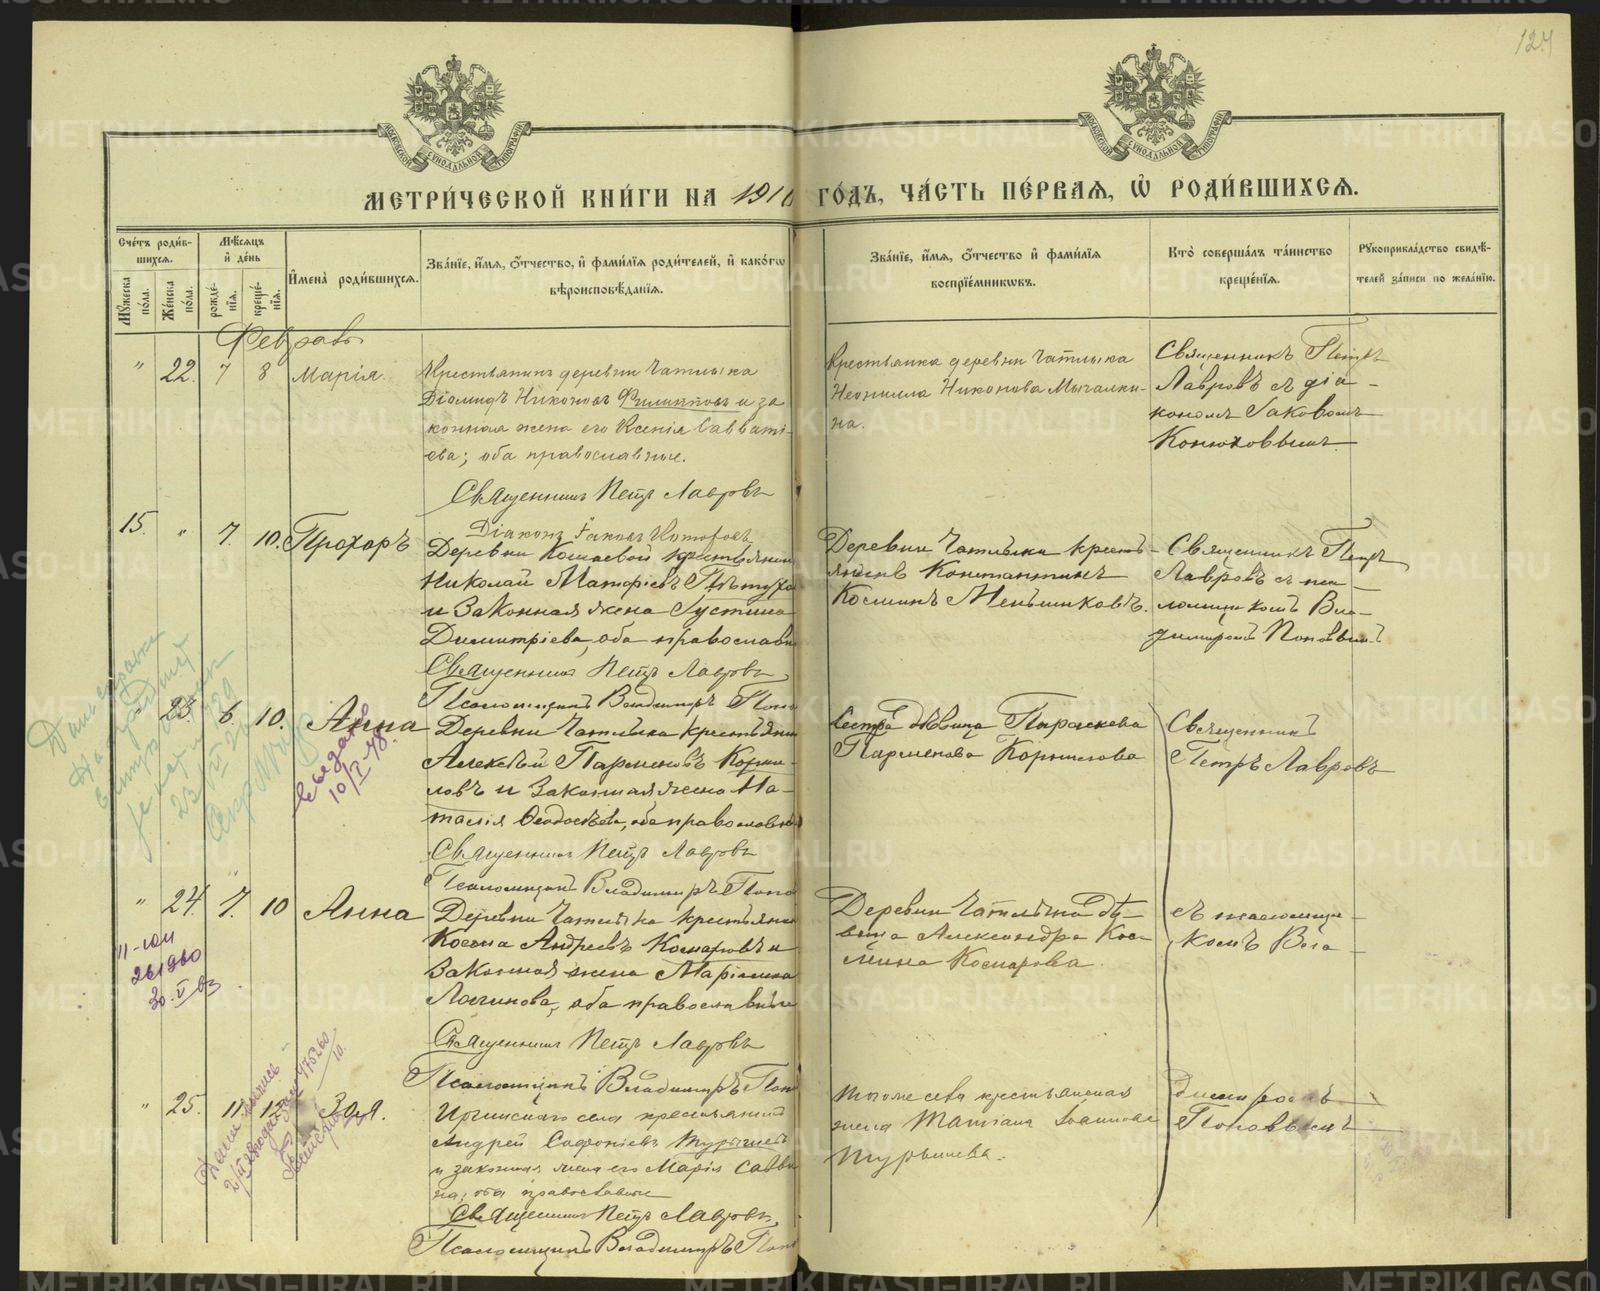 124
МОСКОВСКОЙ СѴНОДАЛЬНОЙ ТИПОГРАФІИ
МОСКОВСКОЙ СѴНОДАЛЬНОЙ ТИПОГРАФІИ
МЕТРИ́ЧЕСКОЙ КНИ́ГИ НА 1910 ГО́ДЪ, ЧА́СТЬ ПЕ́РВАЯ, Ѡ҆ РОДИ́ВШИХСѦ.
Сче́тъ роди́в-
шихсѧ.
Мѹ́жеска по́ла.
Же́нска по́ла.
Мѣ́сѧцъ и҆ де́нь
рожде́-
нїѧ.
креще́-
нїѧ.
И҆мена̀ роди́вшихсѧ.
Зва́нїе, и҆́мѧ, ѻ҆́тчество, и҆ фами́лїѧ роди́телей, и҆ како́гѡ
вѣроисповѣ́данїѧ.
Зва́нїе, и҆́мѧ, ѻ҆́тчество и҆ фами́лїѧ
воспрїе́мникѡвъ.
Кто̀ соверша́лъ та́инство
креще́нїѧ.
Рꙋкоприкла́дство свидѣ́-
телей за́писи по жела́нїю.
Февраль
" 22. 7 8 Марія
Крестьянинъ деревни Чатлыка
Діомидъ Никоновъ Филиппов и за
конная жена его Ксенія Савват-
ева; оба православные.
Священникъ Петръ Лавровъ
Діаконъ Іаковъ
Крестьянка деревни Чатлыка
Неонилла Никонова Мычалки-
на.
Священникъ Петръ
Лавровъ съ діа-
кономъ Іаковомъ
Конюховымъ
15. " 7. 10. Прохоръ
Деревни крестьянин
Николай Матфіевъ Пѣтухо
и законная жена Іустина
Димитріева, оба православн
Священникъ Петръ Лавровъ
Псаломщикъ Владимиръ Попо
Деревни Чатлыка кресть-
янинъ Константинъ
Косминъ Меньшиковъ.
Священникъ Петръ
Лавровъ съ пса-
ломщикомъ Вла-
димиромъ Поповымъ
23. 6. 10. Анна
Деревни Чатлыка крестьяни
Алексѣй Парменовъ Корни-
ловъ и законная жена На-
талія Ѳеодосѣева, оба православн
Священникъ Петръ Лавровъ
Псаломщикъ Владимиръ Попо
Сестра дѣвица Параскева
Парменова Корнилова
Священникъ
Петръ Лавровъ
10/I-48.
" 24. 7. 10 Анна
Деревни Чатлыка крестьянин
Косма Андреевъ Комаровъ и
законная жена Маріамна
Логинова, оба православные
Священникъ Петръ Лавровъ
Псаломщикъ Владимиръ Попо
Деревни Чатлыка дѣ-
вица Александра Кос-
мина Комарова
съ псаломщи-
комъ Вла
II-ЮИ
261960
30.V 63
" 25. 11. Зоя.
крестьянинъ
Андрей Софоніевъ Турышев
и законная жена его Марія Савви
на, оба православные
Священникъ Петръ Лавровъ
Псаломщикъ Владимиръ Попо
Тогоже села крестьянская
жена Татіана Іоаннова
Турышева.
димиромъ
Поповымъ